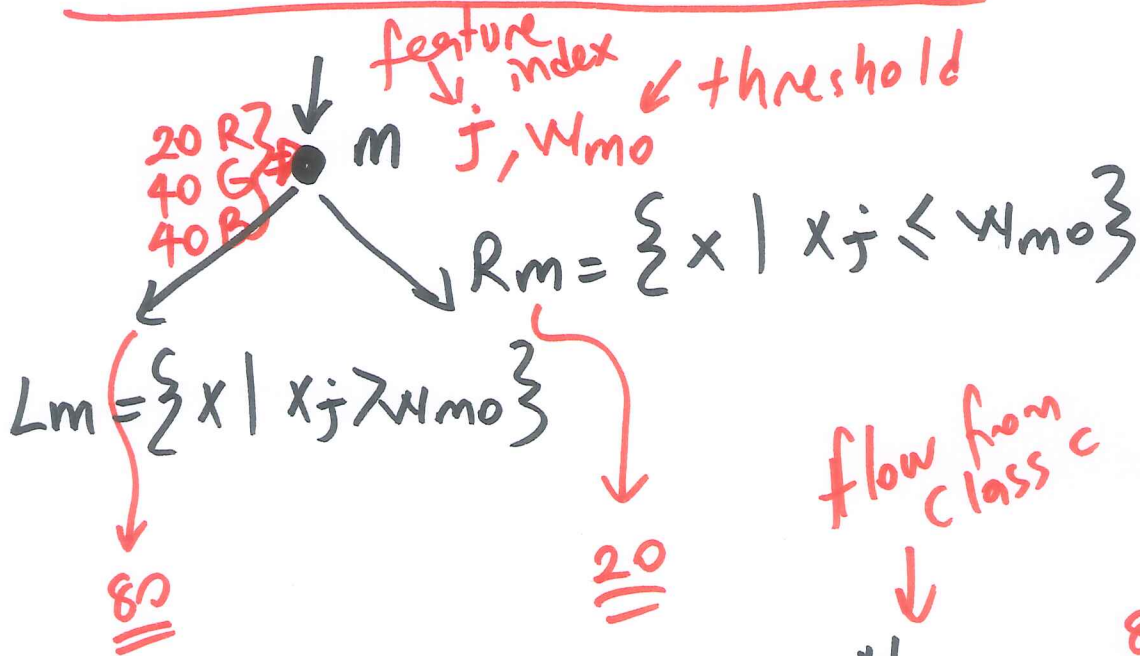 feature index
threshold
20 R
40 G
40 B
m
j, Wmo
Rm = {x | xj ≤ Wmo}
Lm = {x | xj > Wmo}
80
20
flow from
class c